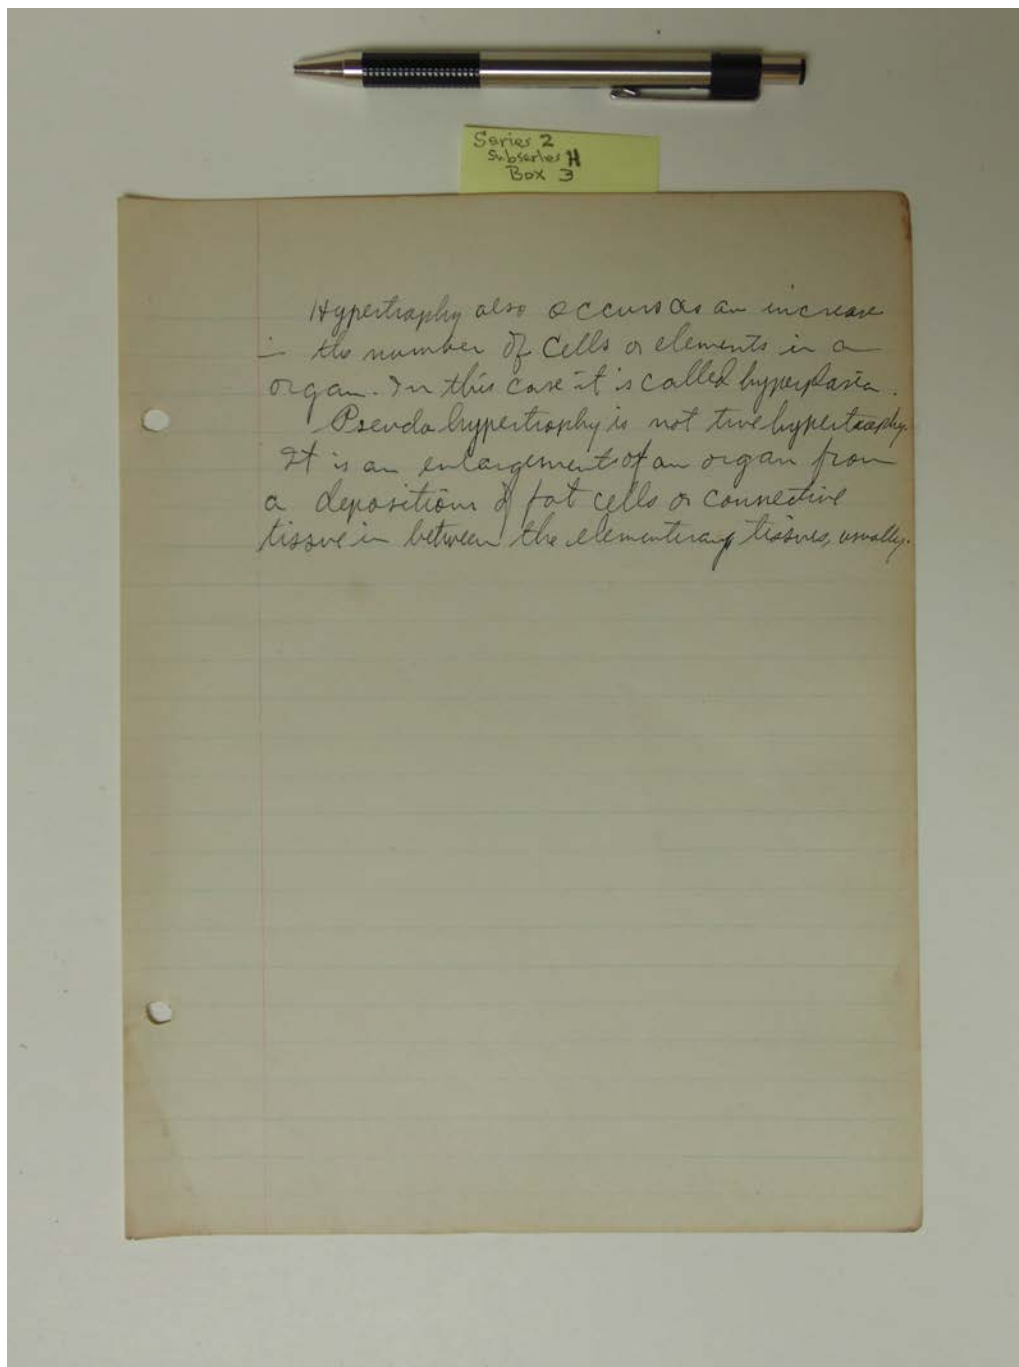 Series 2
Subseries H
Box 3
Hypertrophy also occurs as an increase
in the number of cells or elements in a
organ. In this case it is called hyperplasia.
Pseudo hypertrophy is not true hypertrophy.
It is an enlargement of an organ from
a deposition of fat cells or connective
tissue in between the elementary tissues, usually.